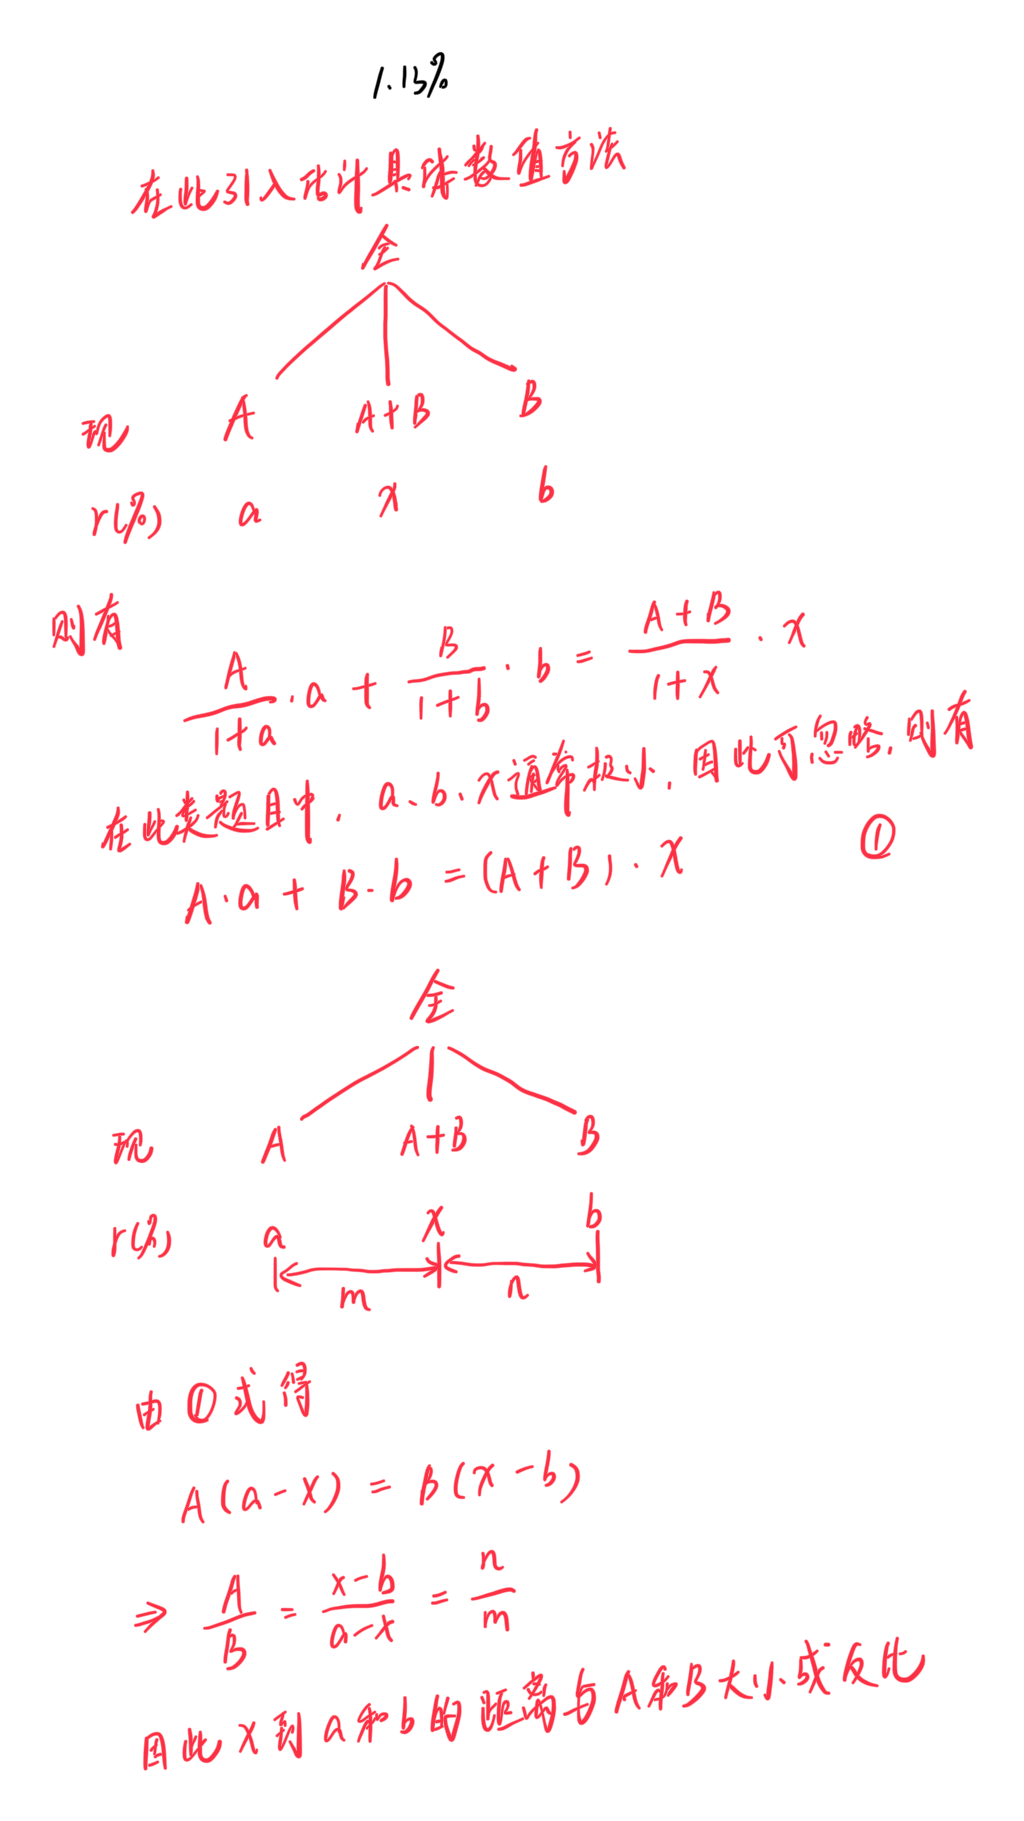 1.13%
在此引入估计具体数值方法
全
A A+B B
现
r(%) a x b
则有
A/(1+a)·a + B/(1+b)·b = (A+B)/(1+x)·x
在此类题目中,a、b、x通常极小,因此可忽略,则有
A·a + B·b = (A+B)·x ①
全
现 A A+B B
r(%) a x b
m n
由①式得
A(a-x) = B(x-b)
⇒ A/B = (x-b)/(a-x) = n/m
因此x到a和b的距离与A和B大小成反比